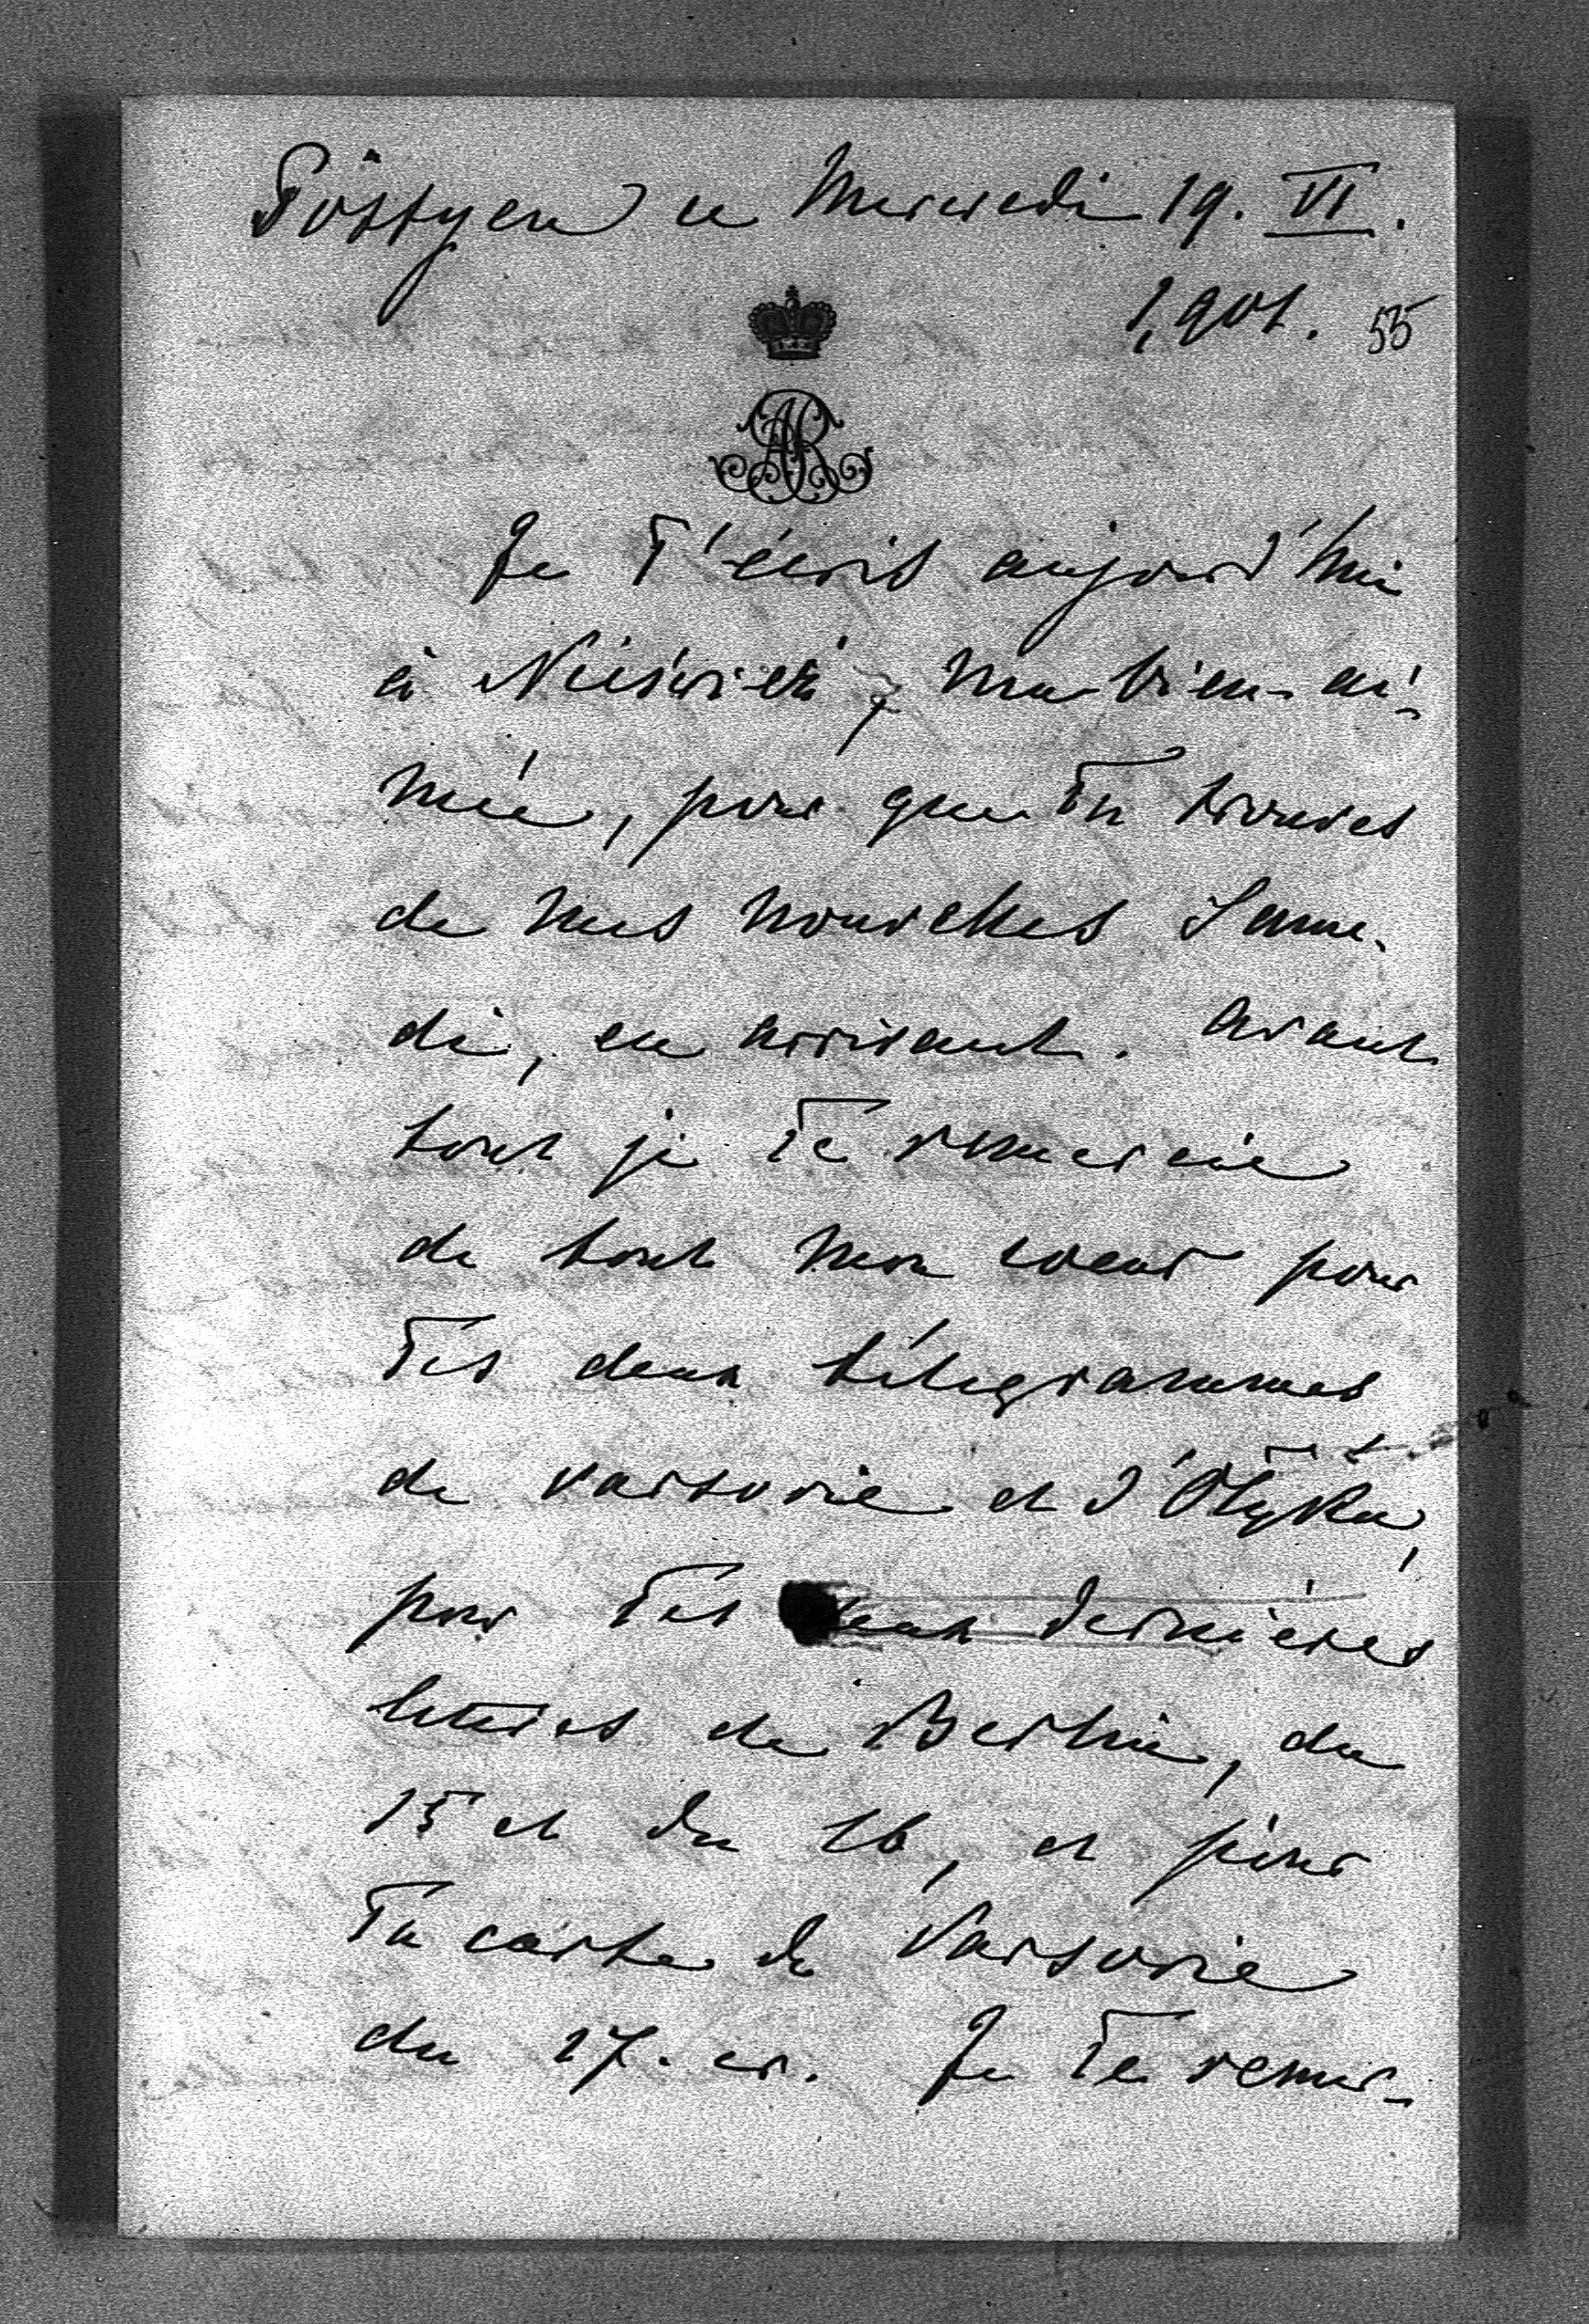 Pöstyen ce Mercredi 19. VI.
1,901. 55
AR
Je T'écris aujourd'hui
à Nieśwież, ma bien-ai-
mée, pour que Tu trouves
de mes nouvelles Same-
di, en arrivant. Avant
tout je Te remercie
de tout mon coeur pour
Tes deux télégrammes
de Varsovie et d'Ołyka,
pour Tes deux dernières
lettres de Berlin, du
15 et du 16, et pour
Ta carte de Varsovie
du 17. cr. Je Te remer-